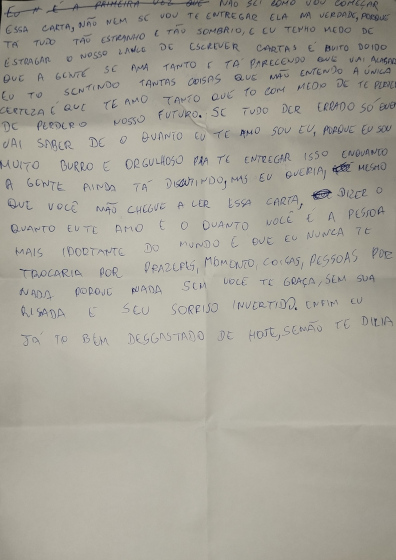 EU A É A PRIMEIRA VEZ QUE NÃO SEI COMO VOU COMEÇAR
ESSA CARTA, NÃO NEM SE VOU TE ENTREGAR ELA NA VERDADE, PORQUE
TÁ TUDO TÃO ESTRANHO E TÃO SOMBRIO, E EU TENHO MEDO DE
ESTRAGAR O NOSSO LANCE DE ESCREVER CARTAS É MUITO DOIDO
QUE A GENTE SE AMA TANTO E TÁ PARECENDO QUE VAI ACABAR
EU TO SENTINDO TANTAS COISAS QUE NÃO ENTENDO A ÚNICA
CERTEZA É QUE TE AMO TANTO QUE TO COM MEDO DE TE PERDER
DE PERDER O NOSSO FUTURO. SE TUDO DER ERRADO SÓ QUEM
VAI SABER DE O QUANTO EU TE AMO SOU EU, PORQUE EU SOU
MUITO BURRO E ORGULHOSO PRA TE ENTREGAR ISSO ENQUANTO
A GENTE AINDA TÁ DISCUTINDO, MAS EU QUERIA, MESMO
QUE VOCÊ NÃO CHEGUE A LER ESSA CARTA, DIZER O
QUANTO EU TE AMO E O QUANTO VOCÊ É A PESSOA
MAIS IPORTANTE DO MUNDO E QUE EU NUNCA TE
TROCARIA POR PRAZERES, MOMENTO, COISAS, PESSOAS POR
NADA PORQUE NADA SEM VOCÊ TE GRAÇA, SEM SUA
RISADA E SEU SORRISO INVERTIDO. ENFIM EU
JÁ TO BEM DESGASTADO DE HOJE, SENÃO TE DIRIA